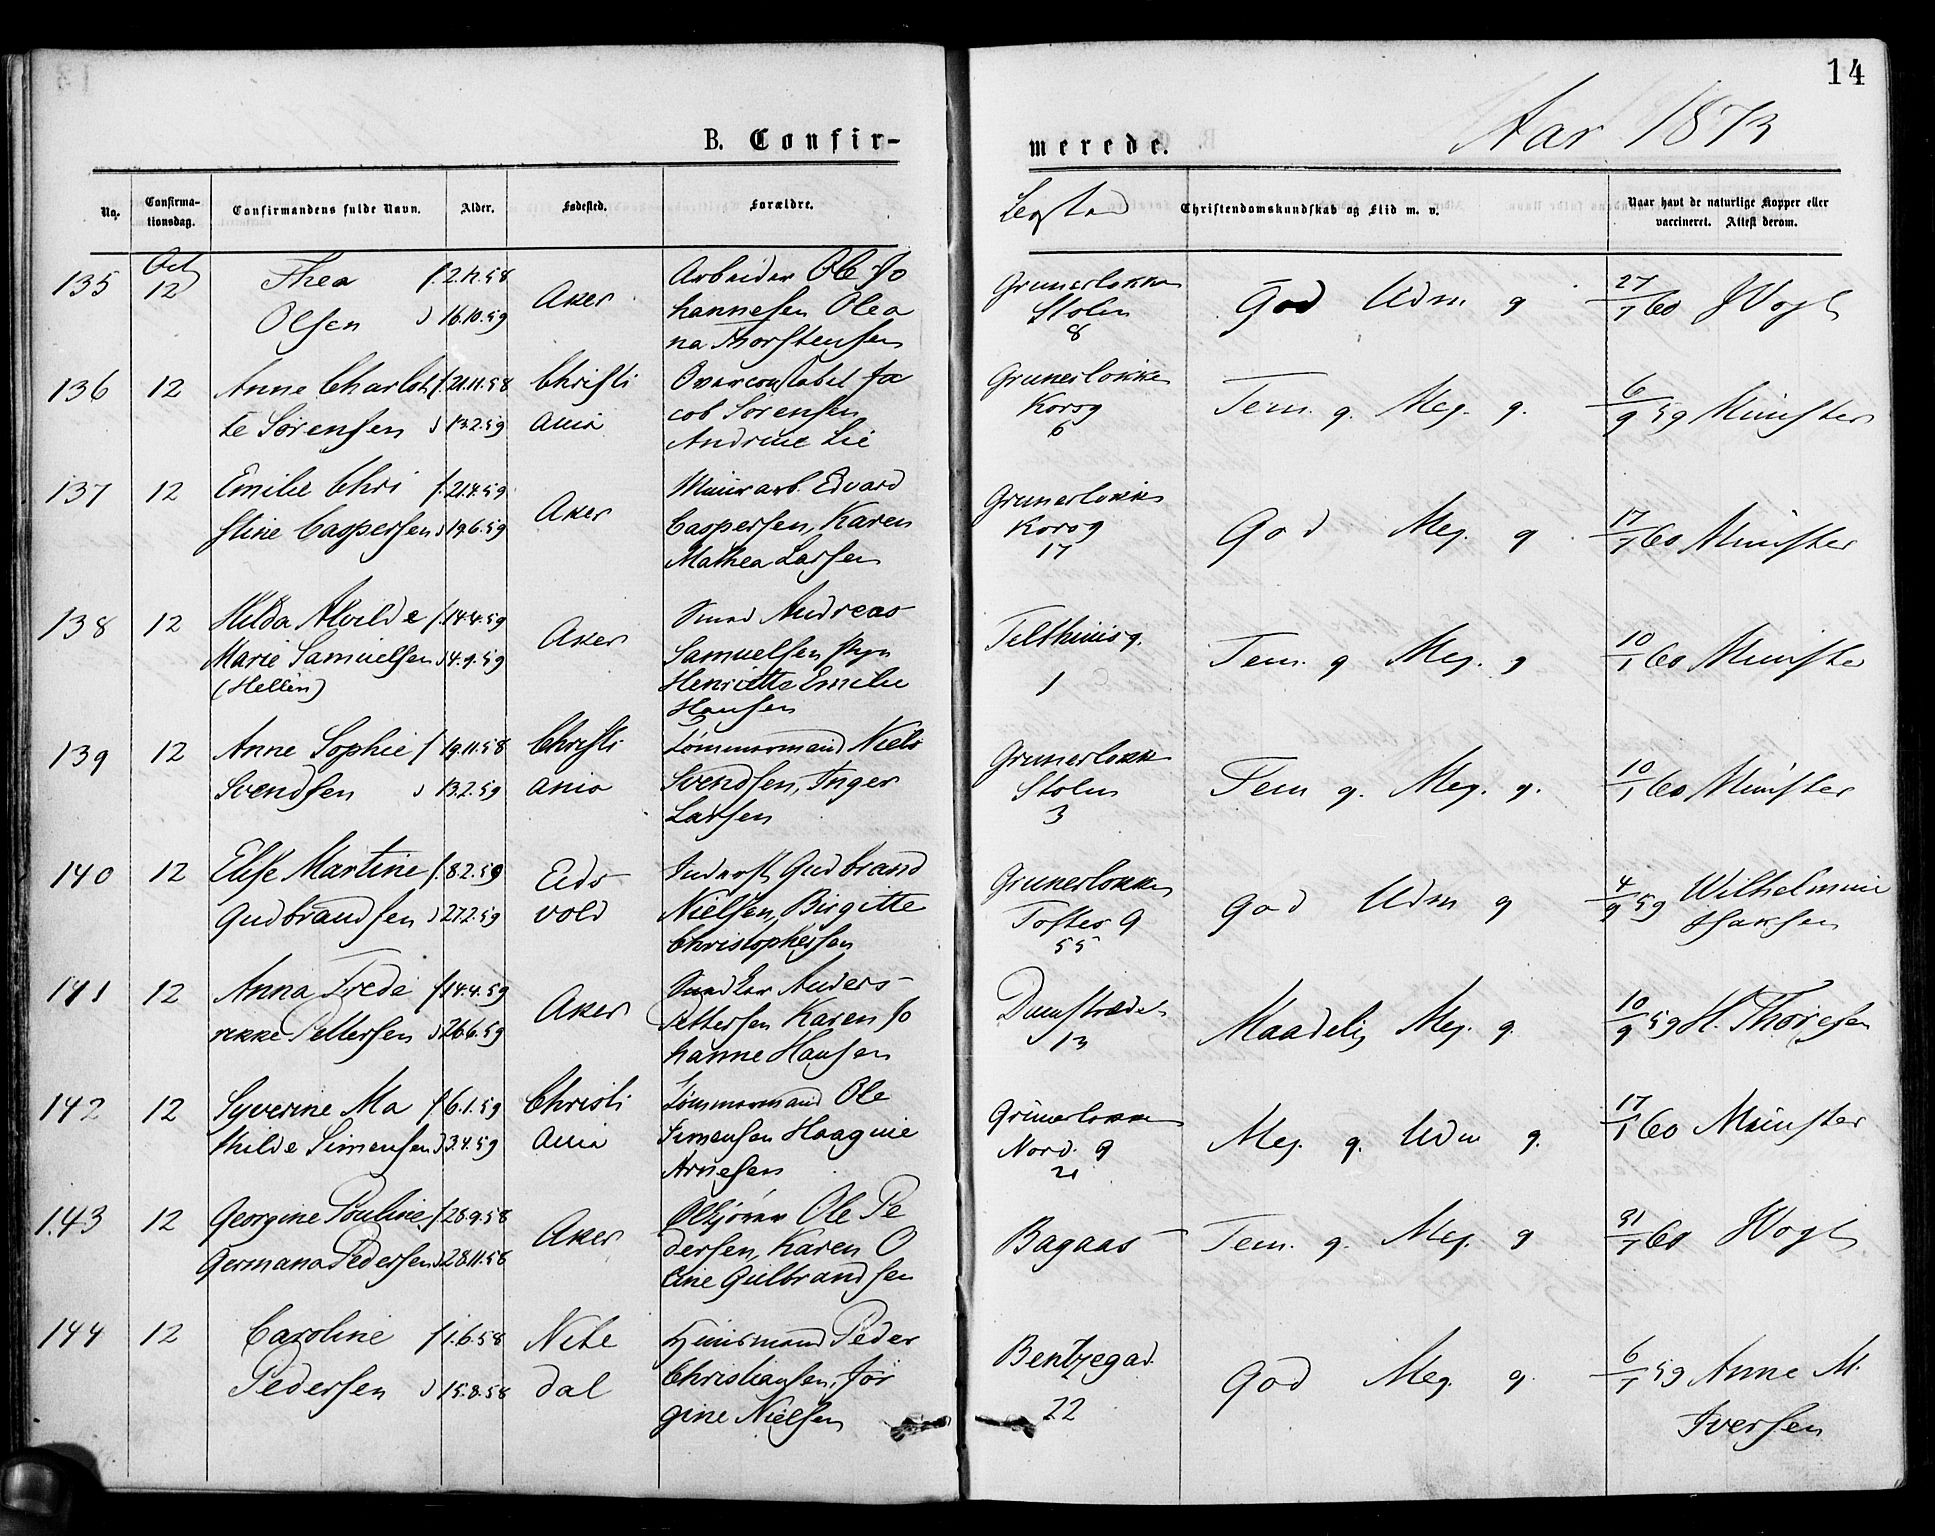 14
B. Confir-
merede.
Aar 1873
No.
Confirma-
tionsdag.
Confirmandens fulde Navn.
Alder.
Fødested.
Forældre.
Bosted
Christendomskundskab og Flid m. v.
Naar havt de naturlige Kopper eller
vaccineret. Attest derom.
135 Oct 12
Thea
Olsen
f. 2.12.58
d 16.10.59
Aker
Arbeider Ole Jo
hannesen Olea
na Thorstensen
Grunerløkken
Stolm
8
God Udm g
27/1 60 JVogt
136 12
Anne Charlot
te Sørensen
f. 21.11.58
d 13.2.59
Christi
ania
Overconstabel Ja
cob Sørensen
Andrine Lie
Grunerløkken
Korsg
6
Tem. g. Meg. g.
6/9 59 Münster
137 12
Emilie Chri
stine Caspersen
f. 21.4.59
d 19.6.59
Aker
Muurarb. Edvard
Caspersen, Karen
Mathea Larsen
Grunerløkken
Korsg
17
God Meg. g
17/1 60 Münster
138 12
Hilda Alvilde
Marie Samuelsen
(Hellen)
f. 14.4.59
d 4.9.59
Aker
Smed Andreas
Samuelsen
Henriette Emilie
Hansen
Telthuusg.
1
Tem. g Meg. g
10/1 60 Münster
139 12
Anne Sophie
Svendsen
f 19.11.58
d 13.2.59
Christi
ania
Tømmermand Niels
Svendsen, Inger
Larsen
Grunerløkk
Stolm
3
Tem g. Meg. g.
10/1 60 Münster
140 12
Elise Martine
Gudbrandsen
f. 8.2.59
d 27.2.59
Eids
vold
Inderst Gudbrand
Nielsen, Birgitte
Christophersen
Grunerløkken
Toftes G
55
God Udm g
4/9 59 Wilhelmine
Isaksen
141 12
Anna Frede
rikke Pettersen
f 14.4.59
d 26.6.59
Aker
Anders
Pettersen Karen Jo
hanne Hansen
Damstrædet
13
Maadelig Meg. g.
10/9 59 H. Thoresen
142 12
Syverine Ma
thilde Simensen
f 6.1.59
d 3.4.59
Christi
ania
Tømmermand Ole
Simensen Haagine
Arnesen
Grünerløkken
Nord. g
21
Meg. g. Udm g.
17/1 60 Münster
143 12
Georgine Pouline
Germana Pedersen
f 28.9.58
d 28.11.58
Aker
Ølkjører Ole Pe
dersen, Karen O
line Gulbrandsen
Bagaas
Tem. g. Meg. g
31/1 60 JVogt
144 12
Caroline
Pedersen
f 1.6.58
d 15.8.58
Nite
dal
Huusmand Peder
Christiansen, Jør
gine Nielsen
Bentzegad.
22
God Meg. g.
6/1 59 Anne M.
Iversen